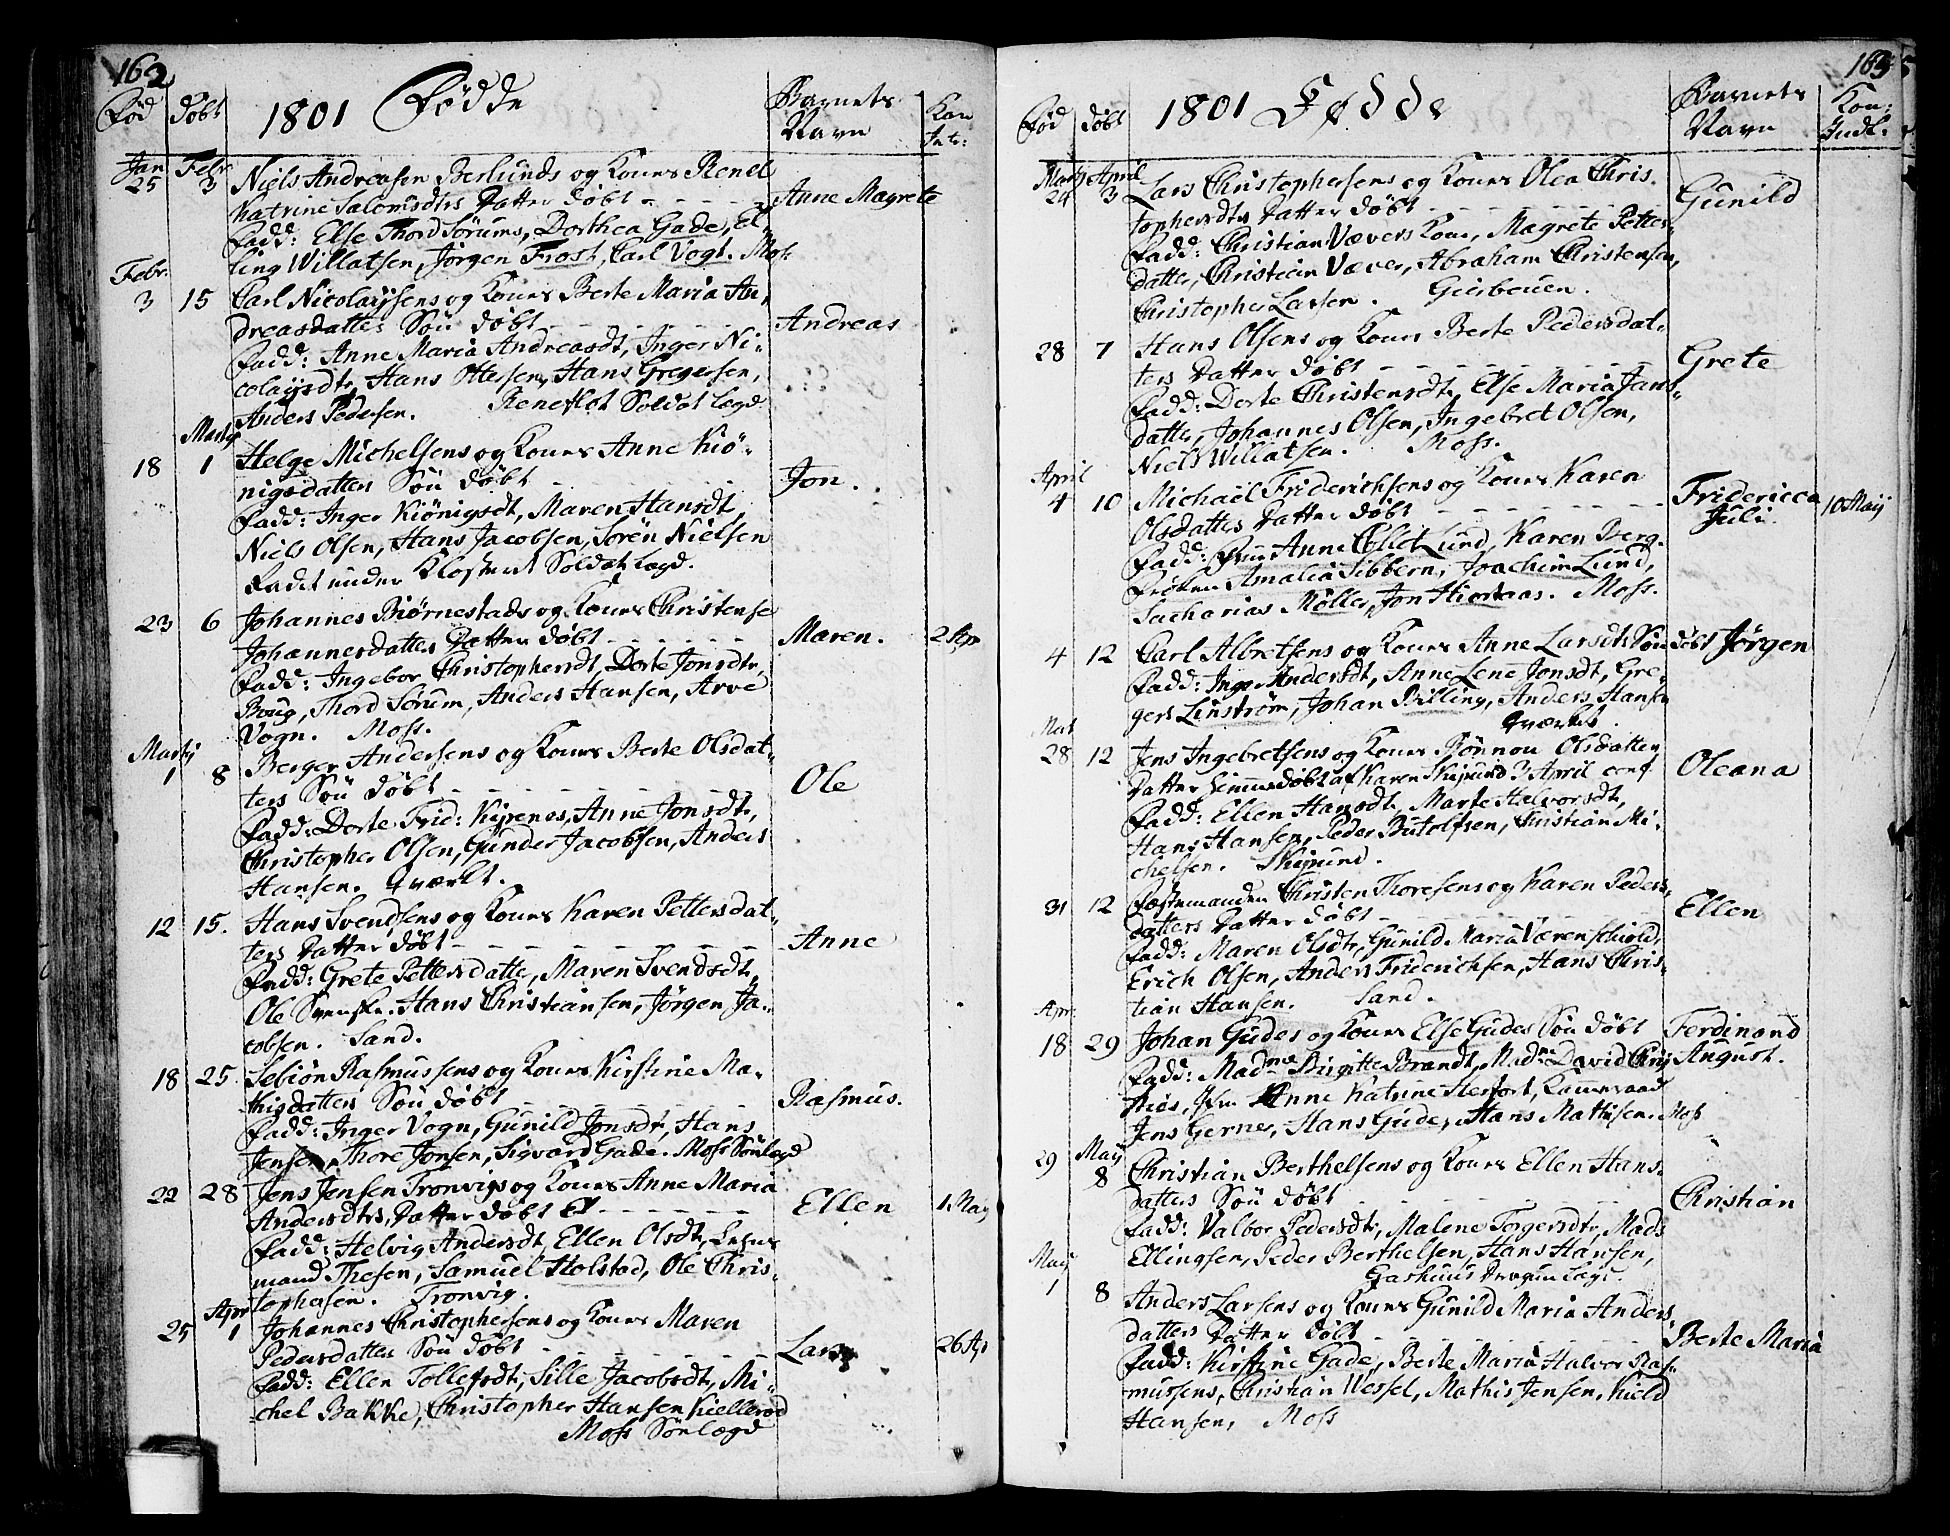 162
Fød Døbt 1801 Födde Barnets Navn Kon Intr:
Jan 25 Febr 3 Niels Andreasen Berlunds og Kones Renel
Katrine Salomsdtrs Datter döbt - - - - - Anne Magrete
Fadd: Else Thord Sörums, Dorthea Gade, El-
ling Willatsen, Jörgen Frost, Carl Vogt. Mos:
Febr. 3 15 Carl Nicolaysens og Kones Berte Maria An-
dreasdatters Sön döbt - - - - - Andreas
Fadd: Anne Maria Andreasdt, Inger Ni-
colaysdtr, Hans Ottersen, Hans Gregersen,
Anders Pedersen. Reneflot Soldat Legd
Martij
18 1 Helge Michelsens og Kones Anne Kiö-
nigsdatters Sön döbt - - - - - Jon.
Fadd: Inger Kiönigsdt, Maren Hansdt,
Niels Olsen, Hans Jacobsen, Sören Nielsen
Ladet under Klostert Soldat Legd.
23 6 Johannes Biörnestads og Kones Christense
Johannesdatters Datter döbt - - - - - Maren. 2 Apr
Fadd: Ingebor Christophersdt, Dorte Jonsdtr,
Boug, Thord Sörum, Anders Hansen, Arve
Vogn. Moss.
Martij 1 8 Berger Andersens og Kones Berte Olsdat-
ters Sön döbt - - - - - Ole
Fadd: Dorte Frid: Kypenes, Anne Jonsdt,
Christopher Olsen, Gunder Jacobsen, Anders
Hansen. Qværkt.
12 15. Hans Svendsens og Kones Karen Pettersdat-
ters Datter döbt - - - - - Anne
Fadd: Grete Pettersdatter, Maren Svendsdt,
Ole Svenske, Hans Christiansen, Jörgen Ja-
cobsen. Sand.
18 25 Sebiön Rasmussens og Kones Kirstine Ma-
thisdatters Sön döbt - - - - - Rasmus.
Fadd: Inger Vogn, Gunild Jonsdt, Hans
Jensen, Thore Jonsen, Sigvard Gade. Moss Sönlegd
22 28 Jens Jensen Tronvigs og Kones Anne Maria
Andersdtrs, Datter döbt - - - - - Ellen 1. May
Fadd: Helvig Andersdt, Ellen Olsdt, Lens-
mand Thesen, Samuel Holstad, Ole Chris-
tophersen. Tronvig.
25 Apr 1 Johannes Christophersens og Kones Maren
Pedersdatters Sön döbt - - - - - Lars 26 Apr
Fadd: Ellen Tollefsdt, Sille Jacobsdt, Mi-
chel Bakke, Christopher Hansen Kiellerød
Moss Sönlegd
163
Fød döbt 1801 Fødde Barnets Navn Kon: Indl:
Martij 24 April 3 Lars Christophersens og Kones Olea Chris-
tophersdtrs Datter döbt - - - - - Gunild
Fadd: Christian Vævers Kone, Magrete Petters-
datter, Christian Væver, Abraham Christensen,
Christopher Larsen.
28 7 Hans Olsens og Kones Berte Pedersdat-
ters Datter döbt - - - - - Grete
Fadd: Dorte Christensdt, Else Maria Jans-
datter, Johannes Olsen, Ingebret Olsen,
Niels Willatsen. Moss.
April 4 10 Michaël Friderichsens og Kones Karen
Olsdatters Datter döbt - - - - - Fridericca Juli. 10 Maij
Fadd: Frue Anne Collet Lund, Karen Berg.
Fröken Amalia Sibbern, Joachim Lund,
Sacharias Möller, Jon Hiortaas. Moss.
4 12 Carl Albretsens og Kones Anne Larsdtr Sön döbt Jörgen
Fadd: Inger Andersdt, Anne Lene Jonsdt, Gre-
gers Linström, Johan Billing, Anders Hansen
Qværket.
Mart 28 12 Jens Ingebretsens og Kones Rönnou Olsdatters
Datter hiemmedöbt af Karen Skipund 3 April conf. Oleana
Fadd: Ellen Hansdt, Marte Halvorsdt,
Hans Hansen, Peder Butolfsen, Christian Mi-
chelsen. Skipund.
31 12 Fæstemanden Christen Thoresens og Karen Peders-
datters Datter döbt - - - - - Ellen
Fadd: Maren Olsdtr, Gunild Maria Værenschiold,
Erich Olsen, Anders Friderichsen, Hans Chris-
tian Hansen. Sand.
Apr: 18 29 Johan Gudes og Kones Else Gudes Sön döbt Ferdinand August.
Fadd: Madme Birgitte Brandt, Madme David Chry-
sties, Jfr Anne Katrine Herfort, Kammeraad
Jens Gerner, Hans Gude, Hans Mathisen. Moss
29 May 8 Christian Berthelsens og Kones Ellen Hans-
datters Sön döbt - - - - - Christian
Fadd: Valbor Pedersdtr, Malene Torgersdtr, Mads
Ellingsen, Peder Berthelsen, Hans Hansen,
Gashuus Dragun Legd.
May 1 8 Anders Larsens og Kones Gunild Maria Anders-
datters Datter döbt - - - - - Berte Maria
Fadd: Kirstine Gade, Berte Maria Halvor Ras-
mussens, Christian Wessel, Mathis Jensen, Kield
Hansen, Moss